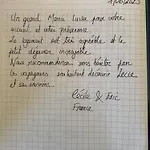 Un grand Merci Lucie pour votre
accueil et votre présence.
Le logement est très agréable et le
petit déjeuner incroyable.
Nous recommandons sans hésiter pour
les voyageurs souhaitant découvrir
et ses environs.
Cécile & Eric
France